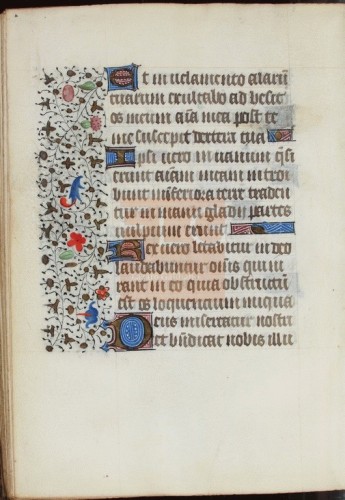 Et in velamento alarum
tuarum exultabo adhesit
os meum aĩa mea post te
me suscepit dextera tua
Ipsi vero in vanum q̃si
erunt aĩam meam introi
bunt inferiora terre traden
tur in manus gladii partes
vulpium erunt
Rex vero letabitur in deo
laudabuntur oĩnes qui iu
rant in eo quia obstructũ
est os loquentium iniqua
Deus misereatur nostri
et bñdicat nobis illu